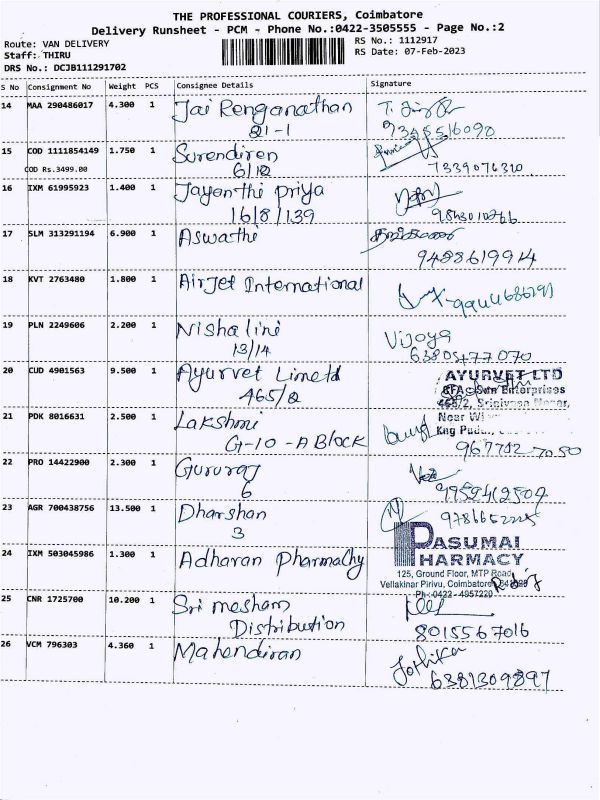 THE PROFESSIONAL COURIERS, Coimbatore
Delivery Runsheet - PCM - Phone No.:0422-3505555 - Page No.:2
Route: VAN DELIVERY
RS No.: 1112917
Staff: THIRU
RS Date: 07-Feb-2023
DRS No.: DCJB111291702
S No Consignment No Weight PCS Consignee Details Signature
14 MAA 290486017 4.300 1 Jai Renganathan
21-1
9345516090
15 COD 1111854149 1.750 1 Surendiren
COD Rs.3499.00 6/12 7339076320
16 IXM 61995923 1.400 1 Jayanthi priya
16/8/139
17 SLM 313291194 6.900 1 Aswathi
9488619914
18 KVT 2763480 1.800 1 Airjet International
19 PLN 2249606 2.200 1 Nishalini Vijaya
13/14 6380477070
20 CUD 4901563 9.500 1 Ayurvet Limetd AYURVET LTD
465/2 Enterprises
465/2, Srinivasa Nagar,
21 PDK 8016631 2.500 1 Lakshmi Near
G-10 -A Block
22 PRO 14422900 2.300 1 Gururaj
6
23 AGR 700438756 13.500 1 Dharshan
3
24 IXM 503045986 1.300 1 Adharan Pharmachy PASUMAI
PHARMACY
125, Ground Floor, MTP Road,
Vellakinar Pirivu, Coimbatore
Ph:0422 - 4957220
25 CNR 1725700 10.200 1 Sri mesham
Distribution
8015567016
26 VCM 796303 4.360 1 Mahendiran Jothika
6381309897